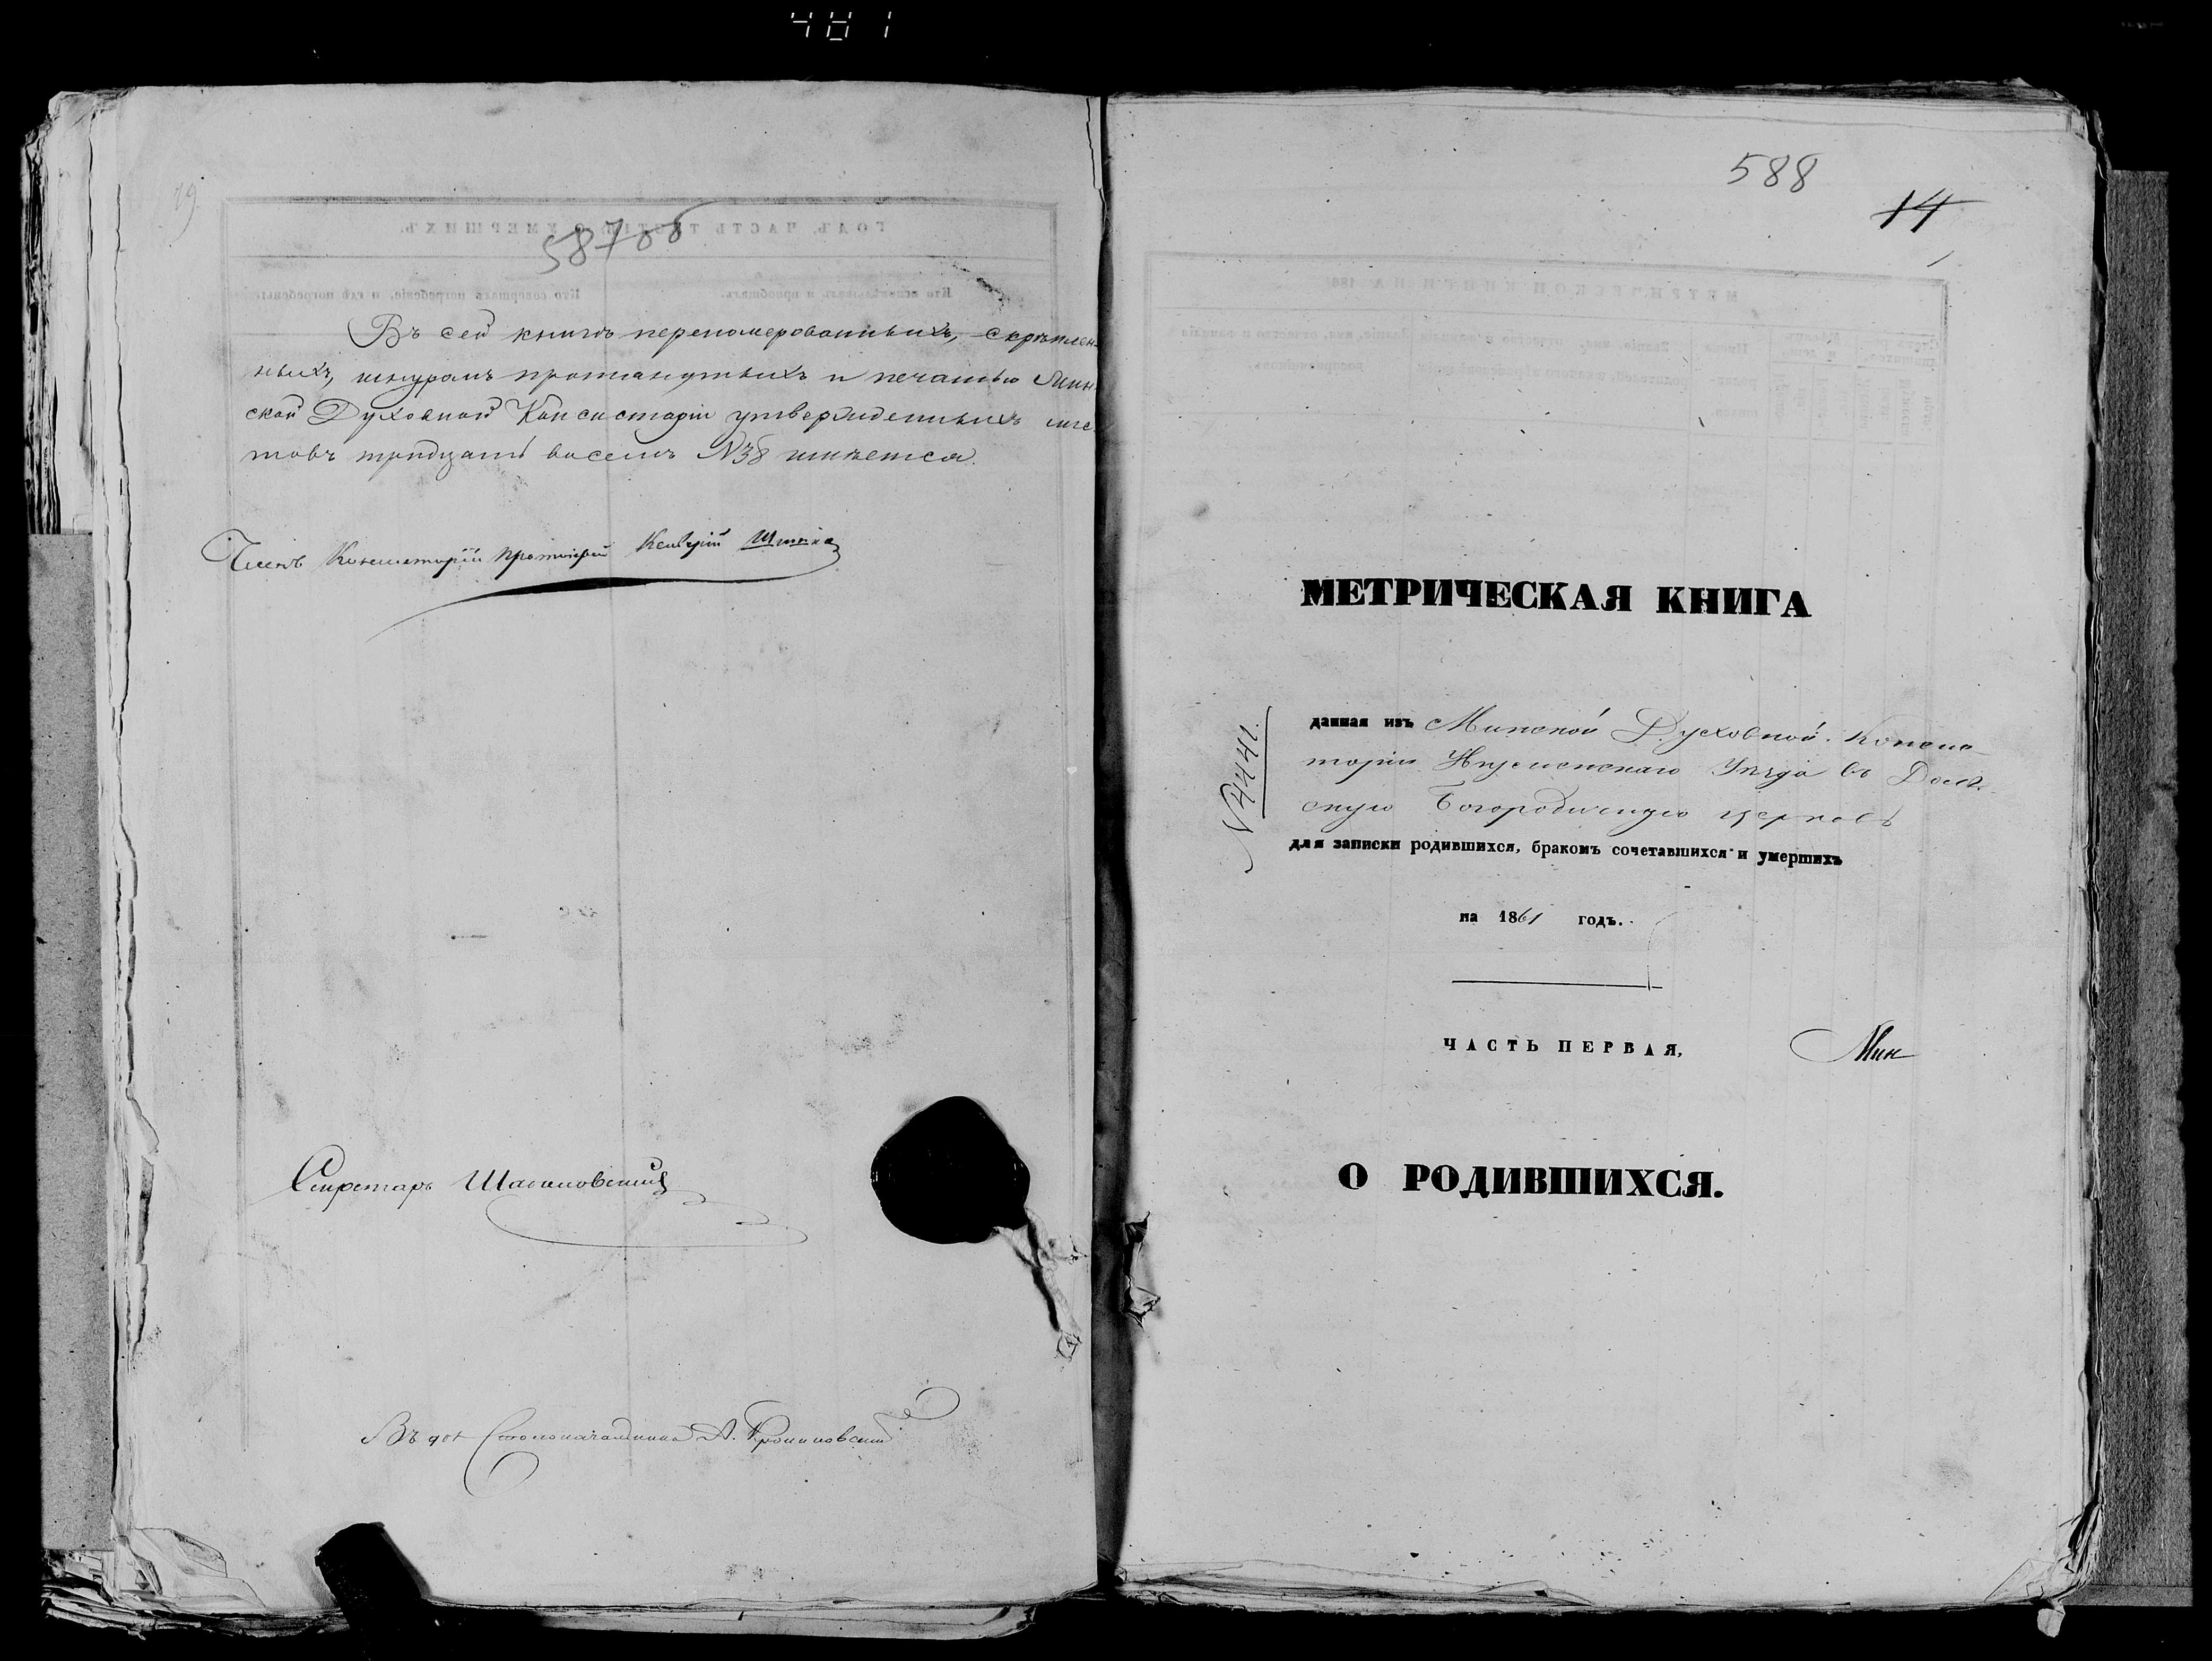 481
587об
Въ сей книгѣ переномерованныхъ, скрѣплен-
ныхъ, шнуромъ протянутыхъ и печатью Мин-
ской Духовной Консисторіи утвержденныхъ лис-
товъ тридцать восемь №38 имѣется.
Членъ Консисторіи протоіерей
Секретарь
Въ дол Столоначальника А.
588
14
1
МЕТРИЧЕСКАЯ КНИГА
№4441.
данная изъ Минской Духовной Конси-
торіи Игуменскаго Уѣзда въ
скую Богородичную церковь
для записки родившихся, бракомъ сочетавшихся и умершихъ
на 1861 годъ.
ЧАСТЬ ПЕРВАЯ,
Мин
О РОДИВШИХСЯ.